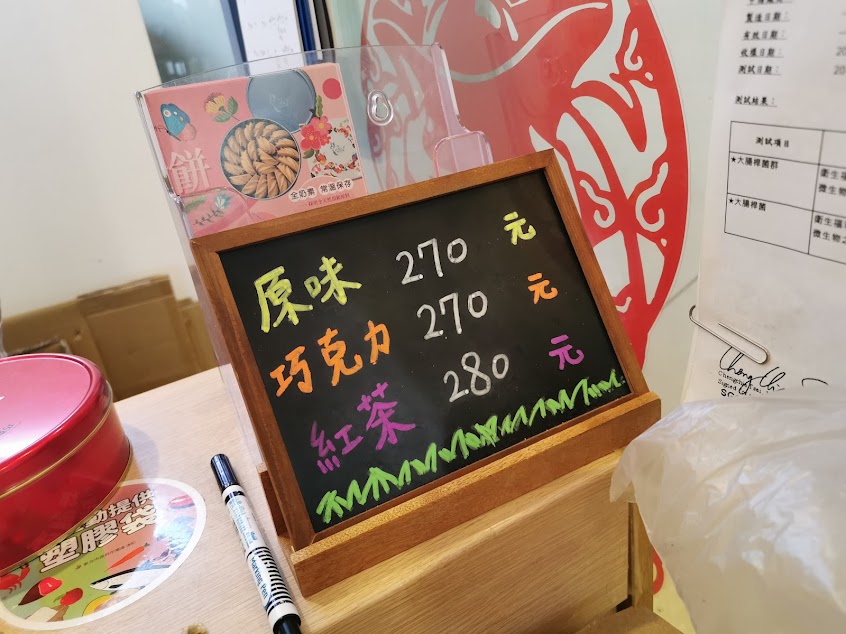 餅
全奈素 常溫保存
原味 270 元
巧克力 270 元
紅茶 280 元
動提供
塑膠袋
Marking Pen
製造日期：
有效日期：
收樣日期： 20
測試日期： 20
測試結果：
測試項目
★大腸桿菌群
衛生福
微生物
★大腸桿菌
衛生福
微生物之